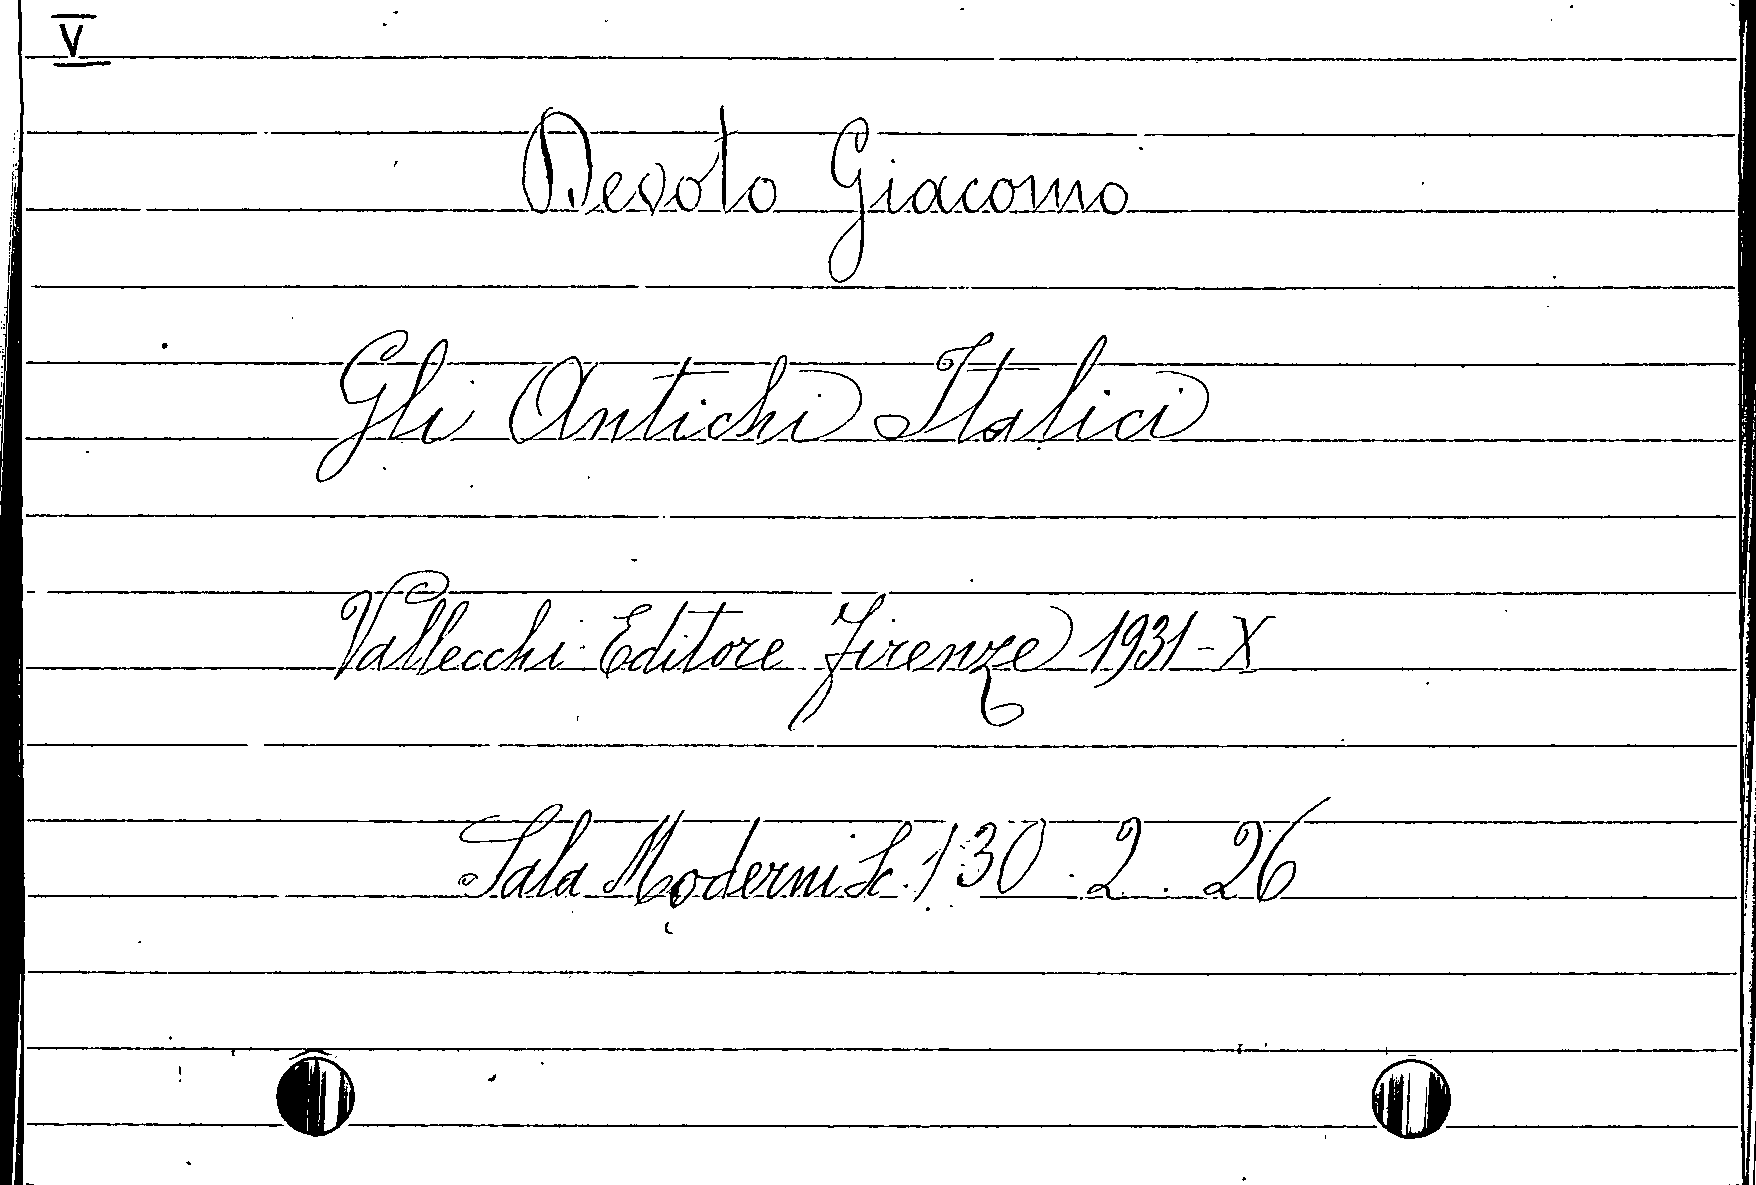 V
Devoto Giacomo
Gli Antichi Italici
Vallecchi Editore Firenze 1931-X
Sala Moderni Sc. 130. 2. 26